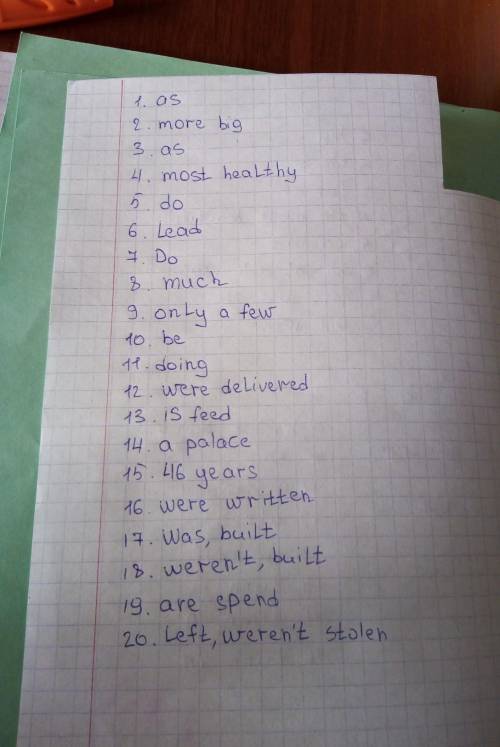 1. as
2. more big
3. as
4. most healthy
5. do
6. Lead
7. Do
8. much
9. only a few
10. be
11. doing
12. were delivered
13. is feed
14. a palace
15. 46 years
16. were written
17. Was, built
18. weren't, built
19. are spend
20. Left, weren't stolen